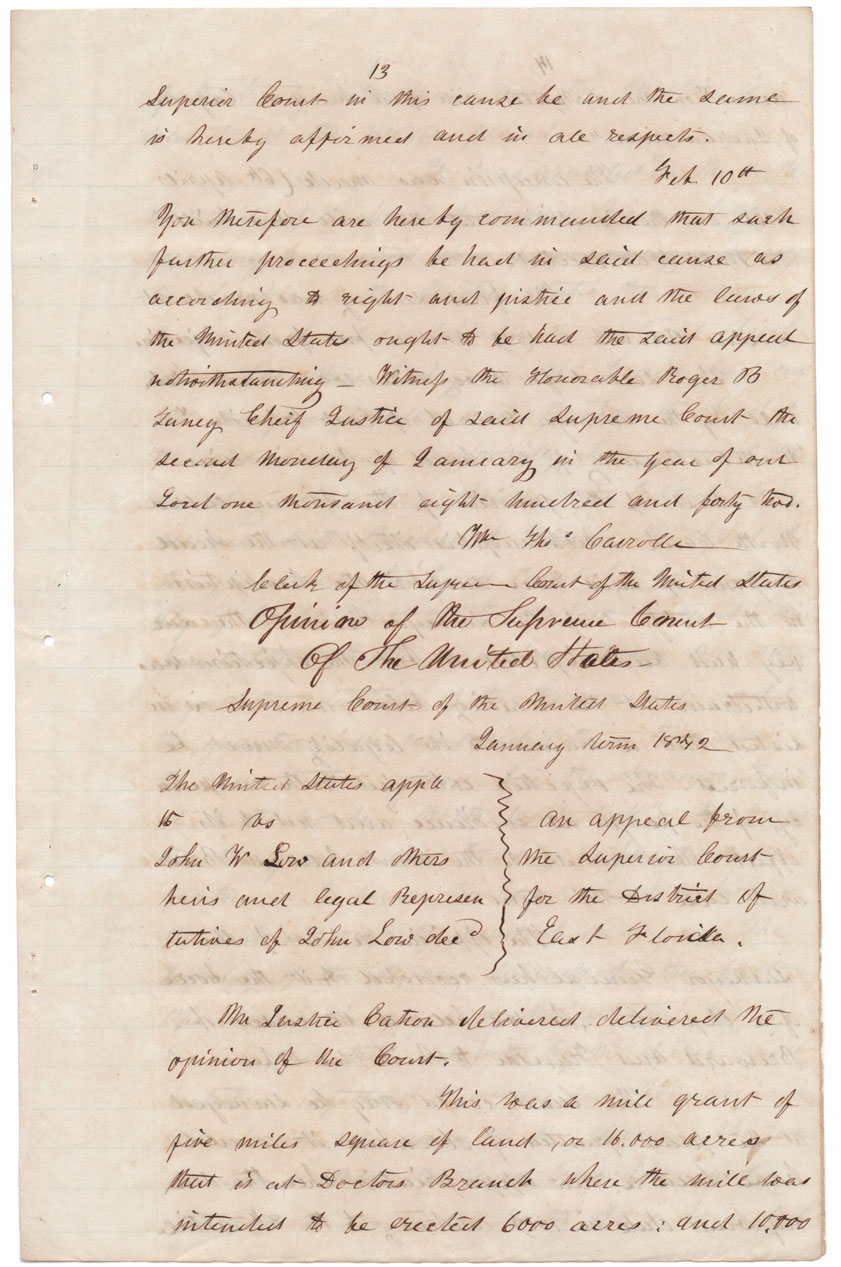 13
Superior Court in this cause be and the same
is hereby affirmed and in all respects.
Feb 10th
You therefore are hereby commanded that such
further proceedings be had in said cause as
according to right and justice and the laws of
the United States ought to be had the said appeal
notwithstanding – Witness the Honorable Roger B
Taney Cheif Justice of said Supreme Court the
second Monday of January in the year of our
Lord one thousand eight hundred and forty two.
Wm Thos Carroll
Clerk of the Supreme Court of the United States
Opinion of the Supreme Court
Of The United States –
Supreme Court of the United States
January term 1842
The United States appll
15 vs
John W Low and others
heirs and legal Represen
tatives of John Low decd
an appeal from
the Superior Court
for the District of
East Florida.
Mr Justice Catron delivered delivered the
opinion of the Court.
This was a mill grant of
five miles square of land, or 16.000 acres
that is at Doctors Branch where the mill was
intended to be erected 6000 acres: and 10,000